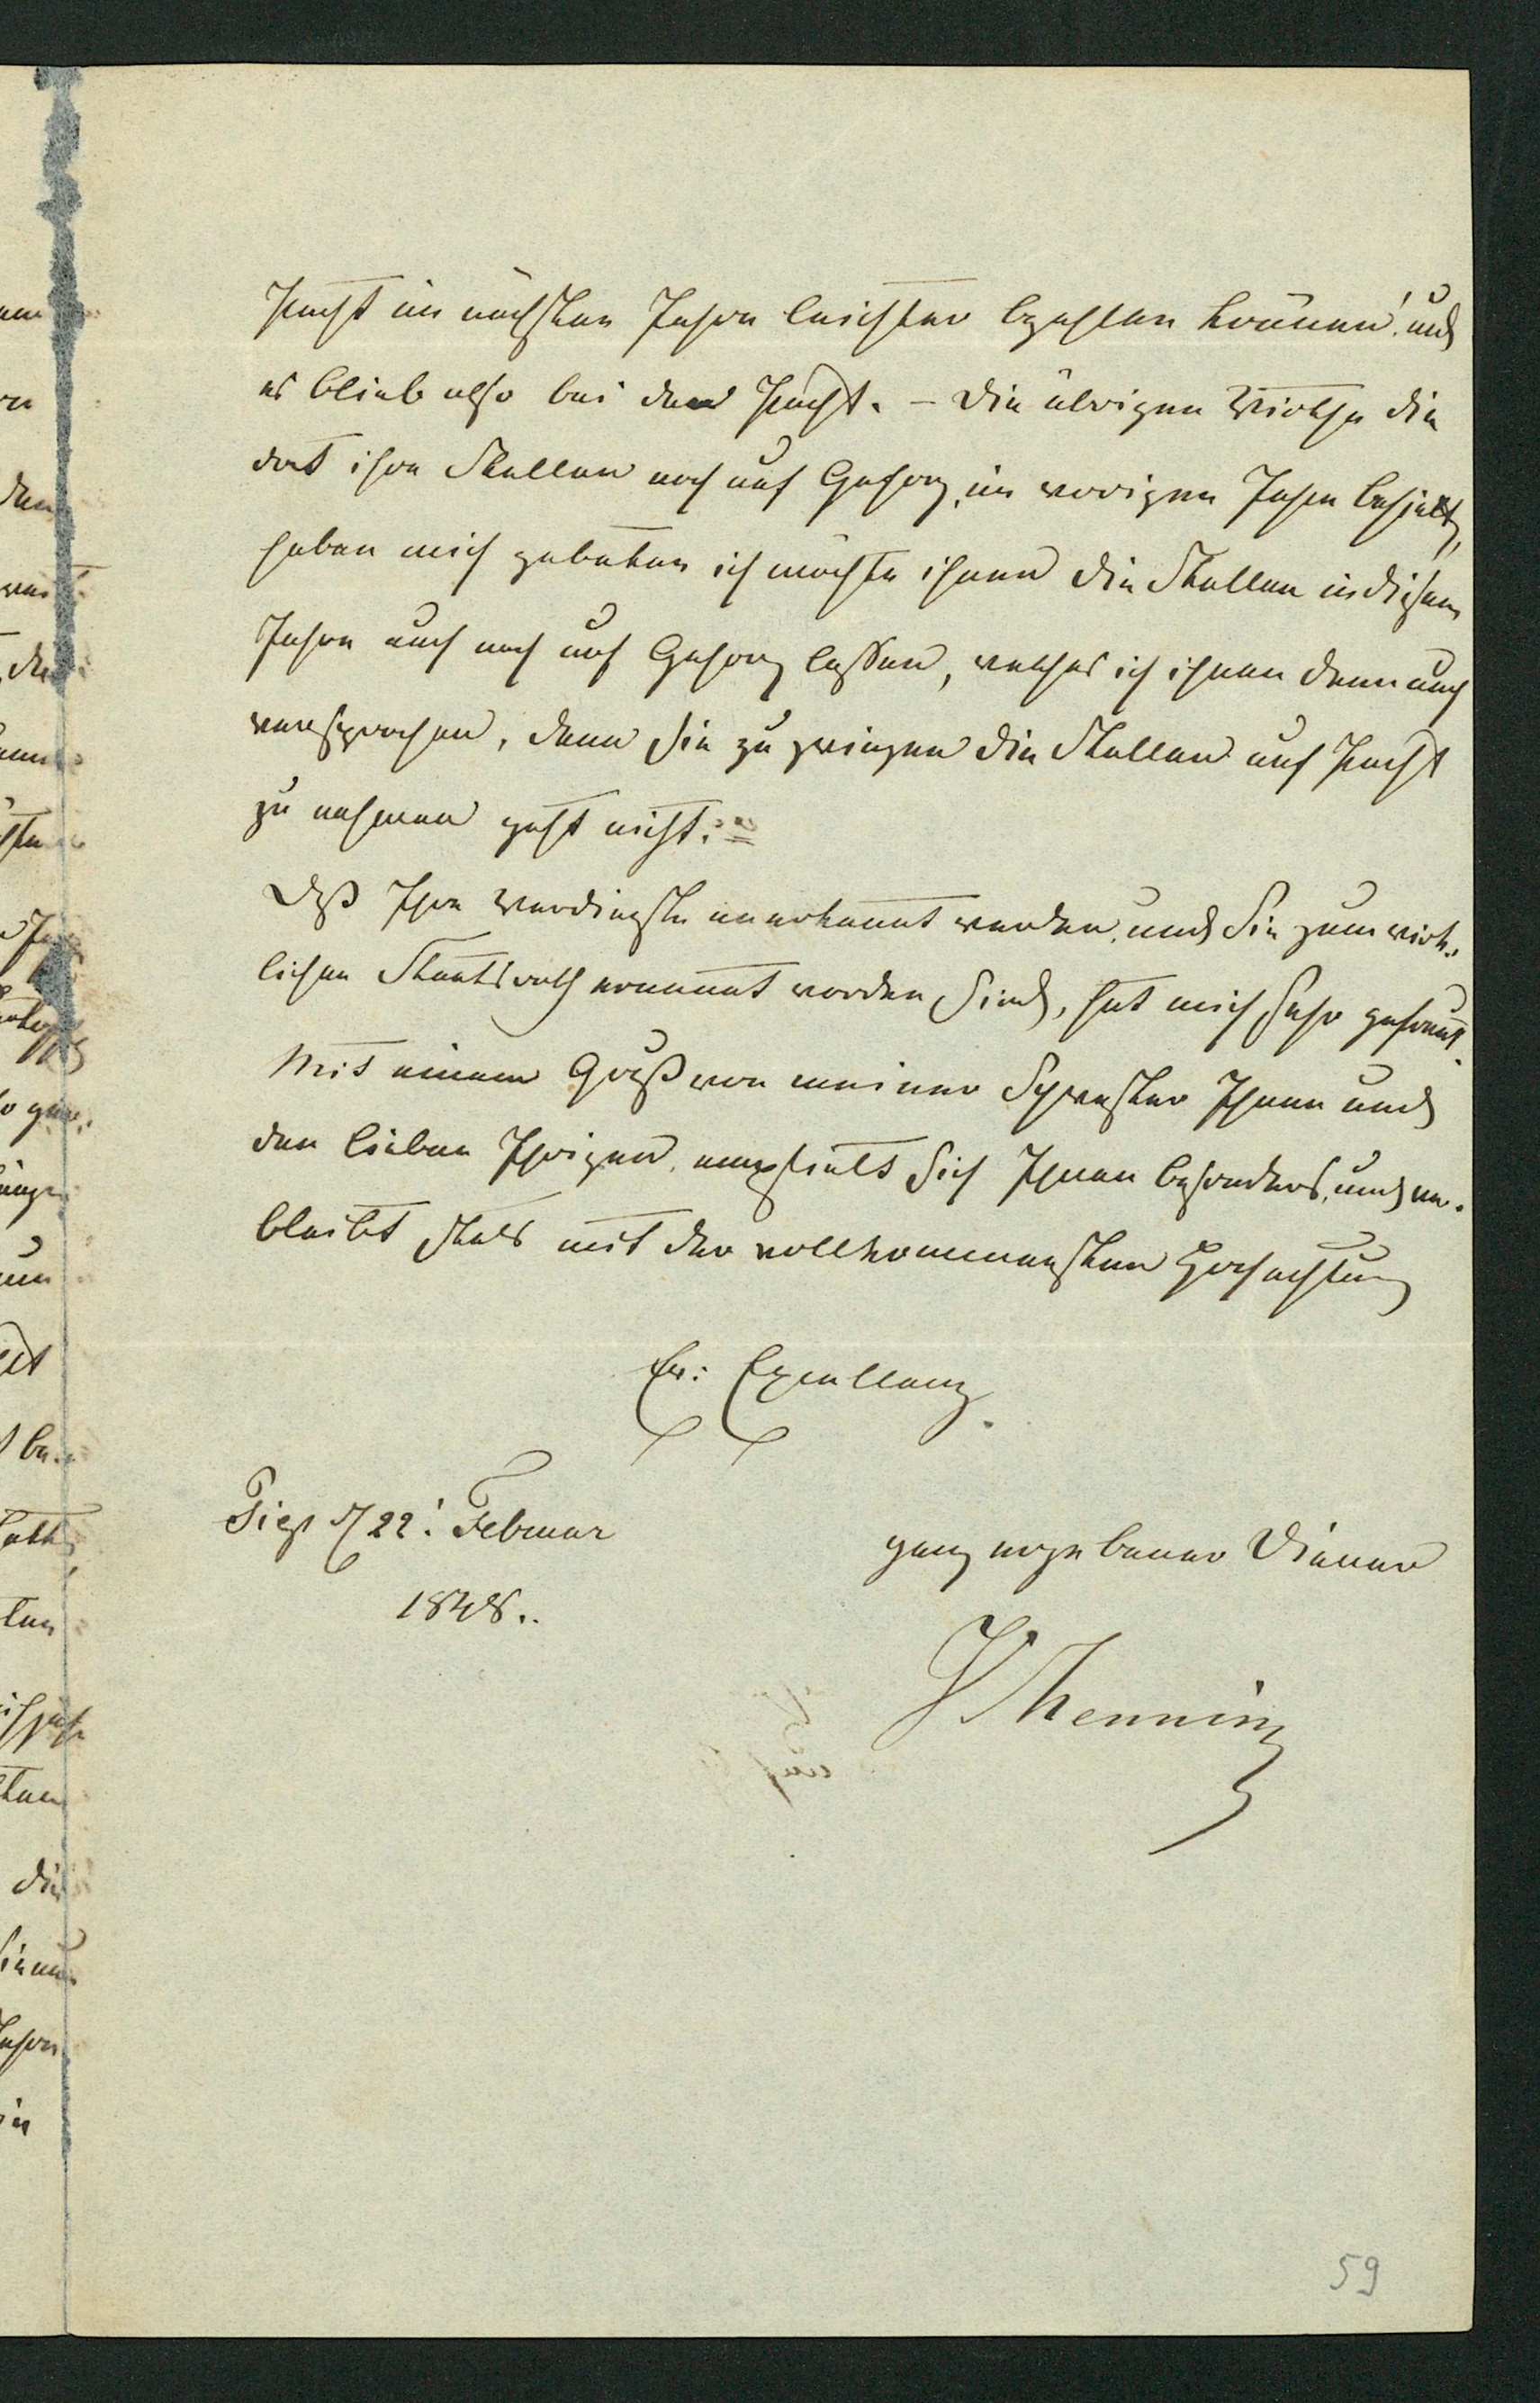 Pacht im nächsten Jahre leichter bezahlen können, und
es blieb also bei der Pacht. – Die übrigen Wirthe die
dort ihre Stellen noch auf Gehorg, im vorigen Jahre behielt,
haben mich gebeten ich möchte ihnen die Stellen in diesem
Jahre auch noch auf Gehorg lassen, welches ich ihnen denn auch
versprochen, denn sie zu zwingen die Stellen auf Pacht
zu nehmen geht nicht. =
Daß Ihre Verdienste anerkannt werden, und Sie zum wirk-
lichen Staatsrath ernannt worden sind, hat mich sehr gefreut.
Mit einem Gruß von meiner Schwester Ihnen und
den lieben Ihrigen, empfielt sich Ihnen besonders, und ver-
bleibt stets mit der vollkommensten Hochachtung
Ew: Excellenz
Piep d/22. Februar
1848..
ganz ergebener Diener
Henning
59